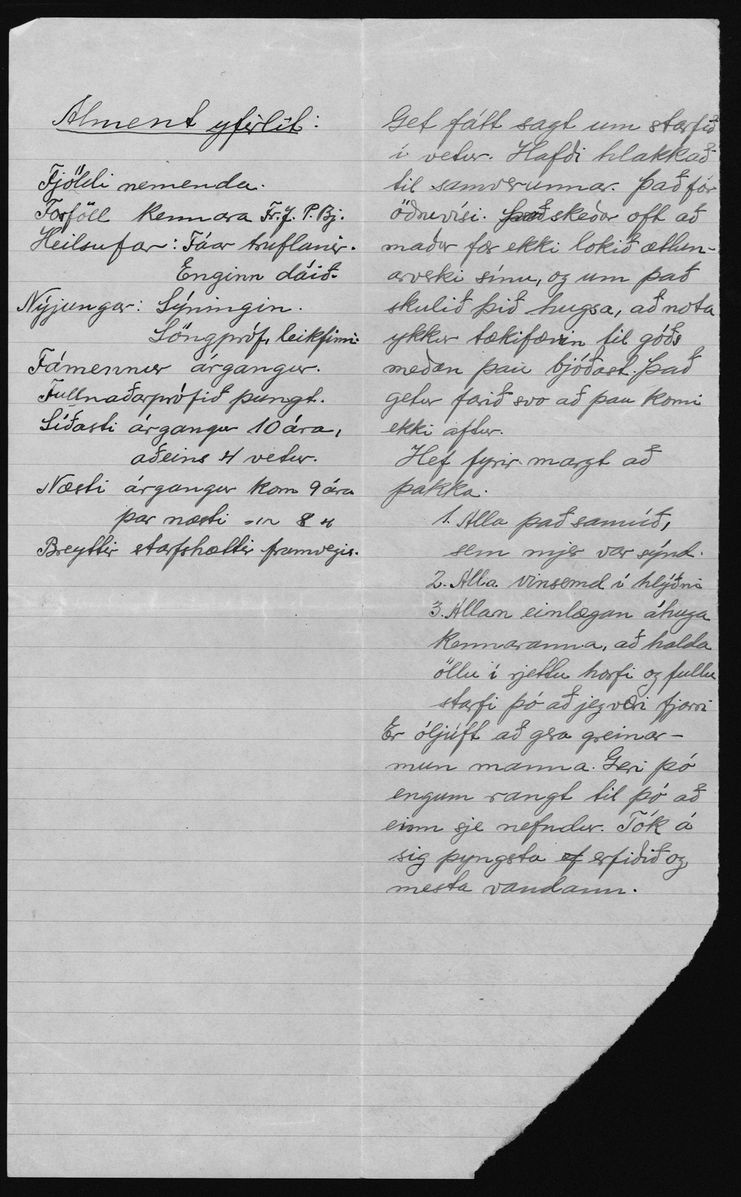 Alment yfirlit:
Fjöldi nemenda.
Forföll kennara Fr.J. P.Bj.
Heilsufar: Fáar truflanir.
Enginn dáið.
Nýjungar: Sýningin.
Söngpróf, leikfimi.
Fámennur árgangur.
Fullnaðarprófið þungt.
Síðasti árgangur 10 ára,
aðeins 4 vetur.
Næsti árgangur kom 9 ára
þar næsti -"- 8 "
Breyttir starfshættir framvegis.
Get fátt sagt um starfið
í vetur. Hafði hlakkað
til samverunnar. Það fór
öðruvísi. Það skeður oft að
maður fær ekki lokið ætlun-
arverki sínu, og um það
skulið þið hugsa, að nota
ykkur tækifærin til góðs
meðan þau bjóðast. Það
getur farið svo að þau komi
ekki aftur.
Hef fyrir margt að
þakka.
1. Alla það samúð,
sem mjer var sýnd.
2. Alla vinsemd í hlýðni
3. Allan einlægan áhuga
kennaranna, að halda
öllu í rjettu horfi og fullu
starfi þó að jeg væri fjarri
Er óljúft að gera greinar-
mun manna. Geri þó
engum rangt til þó að
einn sje nefndur. Tók á
sig þyngsta of erfiðið og
mesta vandann.